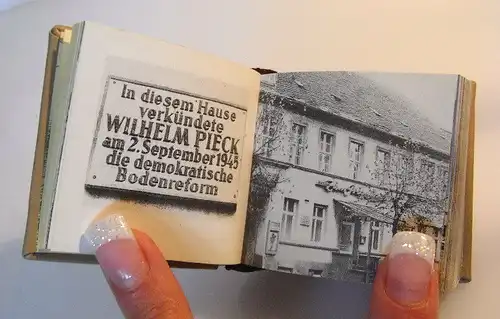 In diesem Hause
verkündete
WILHELM PIECK
am 2. September 1945
die demokratische
Bodenreform